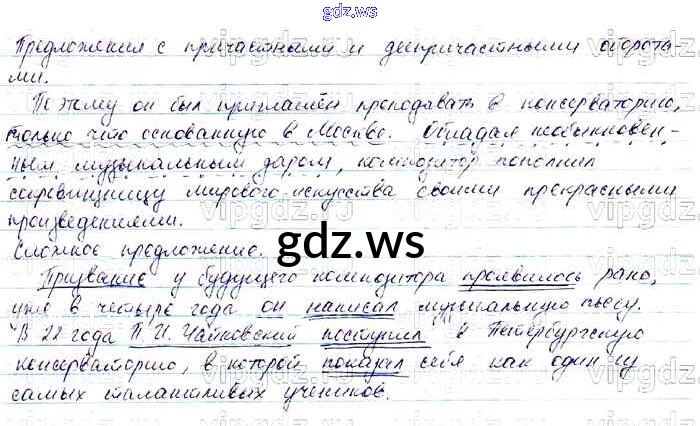 gdz.ws
Предложения с причастными и деепричастными оборота-
ми.
Поэтому он был приглашён преподавать в консерваторию,
только что основанную в Москве. Обладая необыкновен-
ным музыкальным даром, композитор пополнил
сокровищницу мирового искусства своими прекрасными
произведениями.
Сложное предложение.
gdz.ws
Призвание у будущего композитора проявилось рано,
уже в четыре года он написал музыкальную пьесу.
В 22 года П. И. Чайковский поступил в Петербургскую
консерваторию, в которой показал себя как один из
самых талантливых учеников.